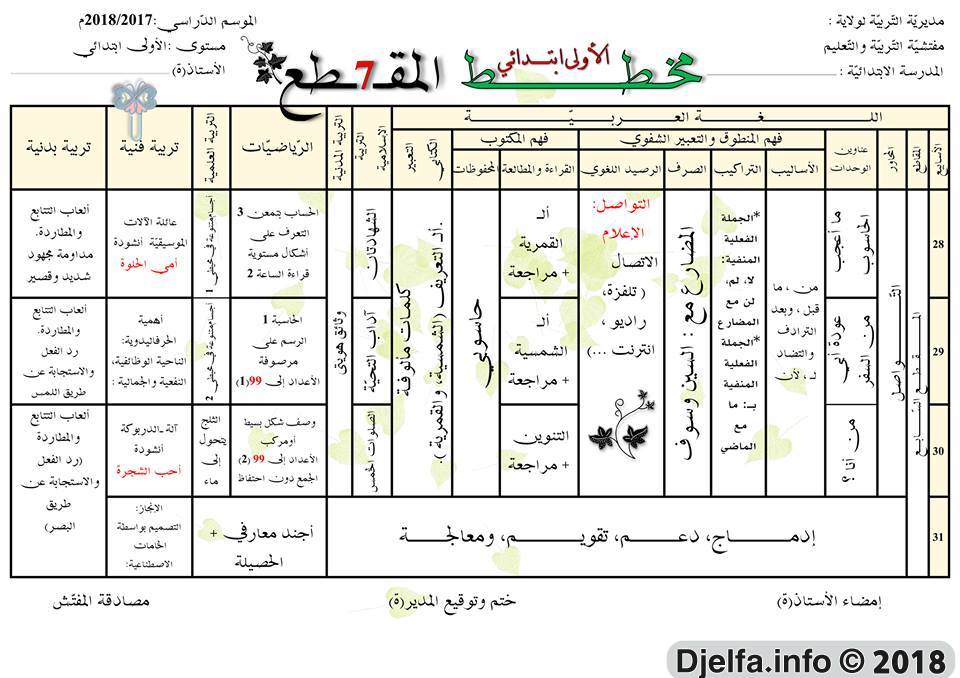 مديريّة التّربيّة لولاية :
مفتشيّة التّربيّة والتّعليم
المدرسة الابتدائيّة :
مخطـط الأولى ابتدائي
المقـ7ـطع
الموسم الدّراسي :2018/2017م
مستوى :الأولى ابتدائي
الأستاذ(ة)
اللـــغـــة العـــربيّـــة
الأسابيع
المقاطع
المحاور
عناوين الوحدات
فهم المنطوق والتعبير الشفوي
فهم المكتوب
الأساليب
التراكيب
الصرف
الرصيد اللغوي
القراءة والمطالعة
المحفوظات
التعبير الكتابي
التربية الإسلامية
التربية المدنية
الرّياضيّات
التربية العلمية
تربية فنية
تربية بدنية
28
29
30
31
المقـطع السـّـابع
التّـــواصل
ما أعجب الحاسوب
عودة أبي من السفر
من أنا ؟
من ، ما
قبل ، وبعد
الترادف
والتضاد
لـ ، لأن
*الجملة
الفعلية
المنفية:
لا، لم،
لن مع
المضارع
*الجملة
الفعلية
المنفية
بـ: ما
مع
الماضي
المضارع مع : السين وسوف
التواصل:
الإعلام
الاتصال
( تلفزة،
راديو ،
انترنت ...)
ألـ
القمرية
+ مراجعة
ألـ
الشمسية
+ مراجعة
التنوين
+ مراجعة
حاسوبي
كلمات مألوفة
.ألـ التعريف (الشمسية، والقمرية ).
الشهادتان
آداب التحيّة
الصلوات الخمس
وثائق هويتي
الحساب بتمعن 3
التعرف على
أشكال مستوية
قراءة الساعة 2
الحاسبة 1
الرسم على
مرصوفة
الأعداد إلى 99(1)
وصف شكل بسيط
أومركب
الأعداد إلى 99 (2)
الجمع دون احتفاظ
أجسام متنوعة في محيطي 1
أجسام متنوعة في محيطي 2
الثلج
يتحول
إلى
ماء
عائلة الآلات
الموسيقيّة أنشودة
أمي الحلوة
أهمية
الحرفاليدوية:
الناحية الوظائفية،
النفعية والجمالية :
آلة-الدربوكة
أنشودة
أحب الشجرة
الإنجاز:
التصميم بواسطة
الخامات
الاصطناعية:
ألعاب التتابع
والمطاردة.
مداومة مجهود
شديد وقصير
ألعاب التتابع
والمطاردة.
رد الفعل
والاستجابة عن
طريق اللمس
ألعاب التتابع
والمطاردة
(رد الفعل
والاستجابة عن
طريق
البصر)
إدمـــاج، دعـــم، تقويـــم، ومعالجـــة
أجند معارفي +
الحصيلة
إمضاء الأستاذ(ة)
ختم وتوقيع المدير(ة)
مصادقة المفتّش
Djelfa.info © 2018